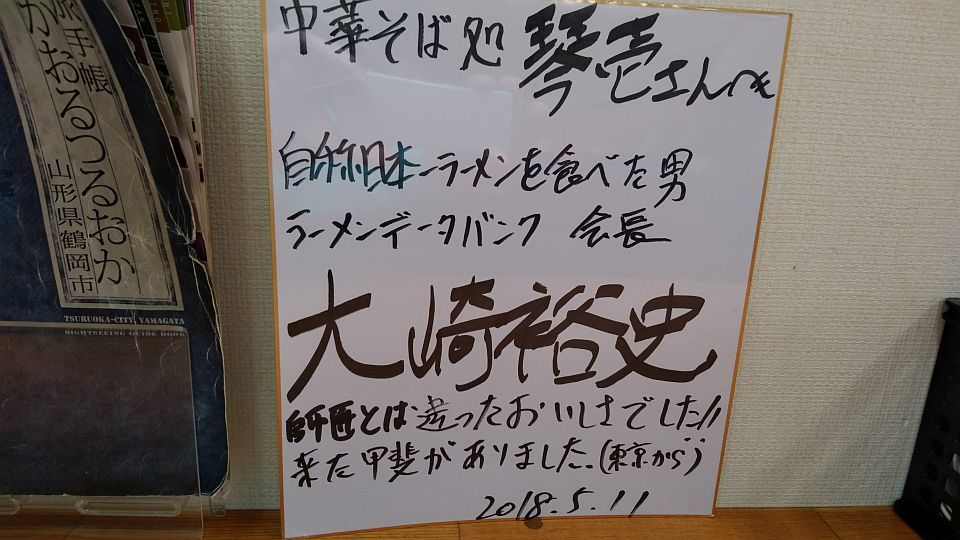 中華そば処 琴壱さん江
自称日本一ラーメンを食べた男
ラーメンデータバンク 会長
大崎裕史
師匠とは違ったおいしさでした!!
来た甲斐がありました。(東京から)
2018.5.11
旅手帳
かおるつるおか
山形県鶴岡市
TSURUOKA-CITY, YAMAGATA
SIGHTSEEING GUIDE BOOK